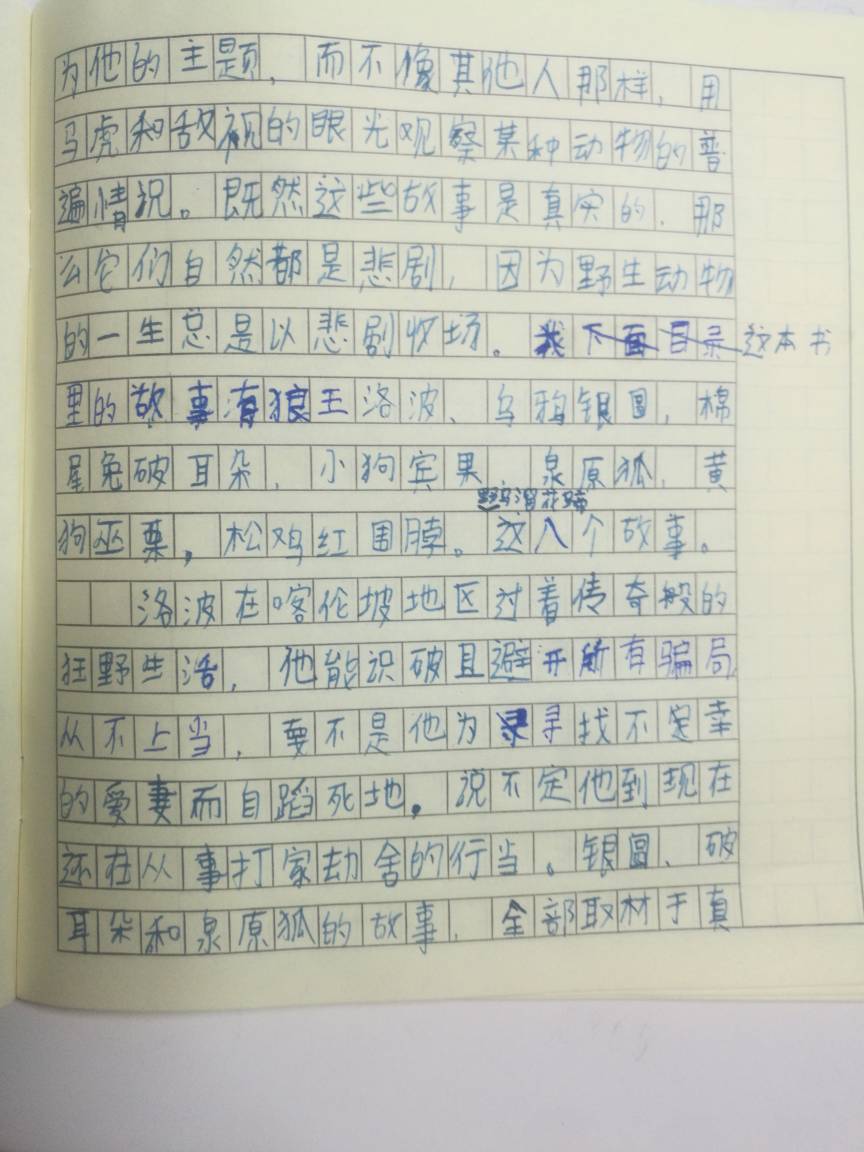 为他的主题，而不像其他人那样，用
马虎和敌视的眼光观察某种动物的普
遍情况。既然这些故事是真实的，那
么它们自然都是悲剧，因为野生动物
的一生总是以悲剧收场。我下面目录这本书
里的故事有狼王洛波、乌鸦银圆，棉
尾兔破耳朵，小狗宾果，泉原狐，黄
野马溜花蹄
狗巫栗，松鸡红围脖。这八个故事。
洛波在喀伦坡地区过着传奇般的
狂野生活，他能识破且避开所有骗局，
从不上当，要不是他为寻找不定幸
的爱妻而自蹈死地。说不定他到现在
还在从事打家劫舍的行当。银圆、破
耳朵和泉原狐的故事，全部取材于真